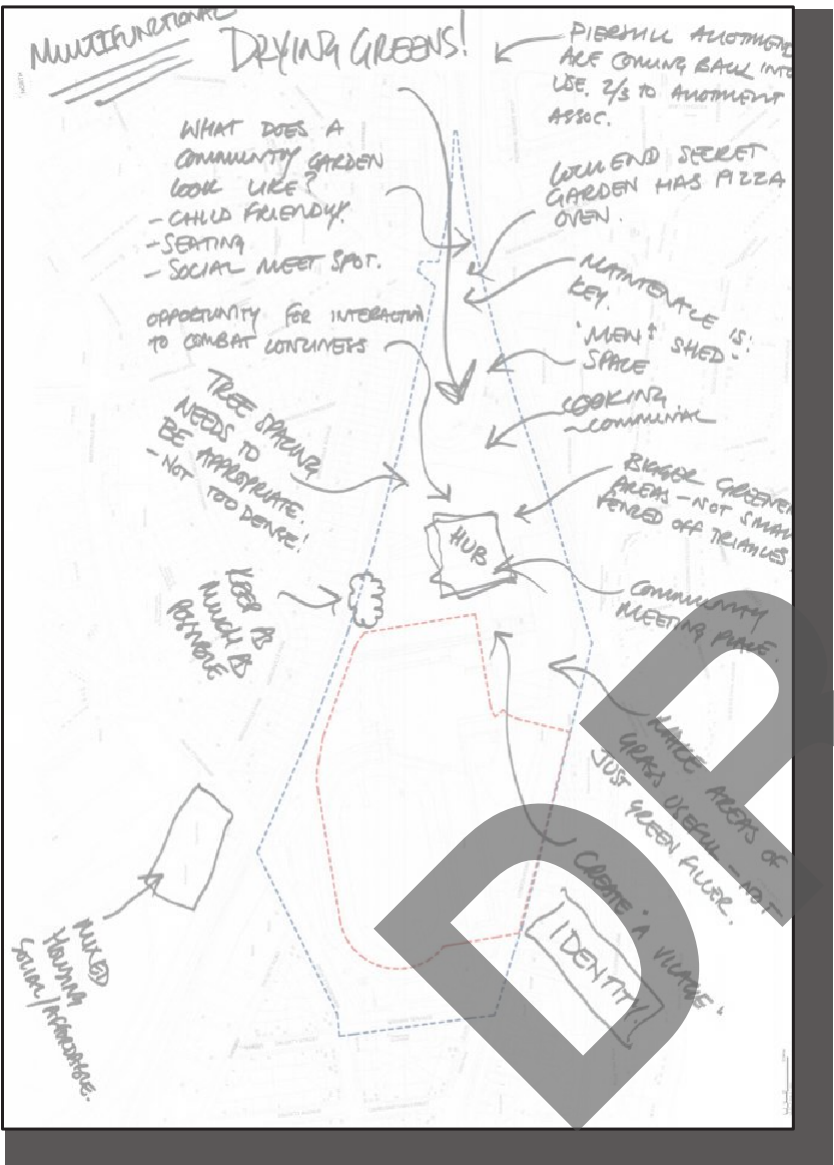 MULTIFUNCTIONAL
DRYING GREENS!
PIERSHILL ALLOTMENT
ARE COMING BACK INTO
USE. 2/3 TO ALLOTMENT
ASSOC.
WHAT DOES A
COMMUNITY GARDEN
LOOK LIKE?
- CHILD FRIENDLY.
- SEATING
- SOCIAL MEET SPOT.
LOCHEND SECRET
GARDEN HAS PIZZA
OVEN.
MAINTENANCE IS
KEY.
OPPORTUNITY FOR INTERACTION
TO COMBAT LONLINESS
'MENS SHED'
SPACE
COOKING
- COMMUNAL
TREE SPACING
NEEDS TO
BE APPROPRIATE.
- NOT TOO DENSE!
BIGGER GREENER
AREAS - NOT SMALL
FENCED OFF TRIANGLES
HUB
KEEP AS
MUCH AS
POSSIBLE
COMMUNITY
MEETING PLACE.
MAKE AREAS OF
GRASS USEFUL - NOT
JUST GREEN FILLER.
CREATE 'A VILLAGE'
IDENTITY!
MIXED
HOUSING
SOCIAL/AFFORDABLE.
NORTH